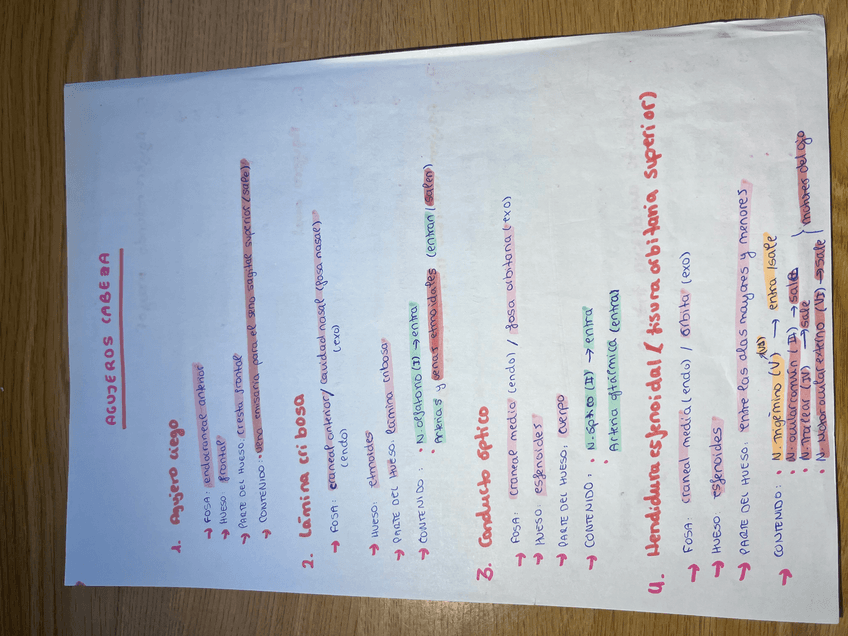 AGUJEROS CABEZA
1. Agujero ciego
→ FOSA: endocraneal anterior
→ HUESO frontal
→ PARTE DEL HUESO: cresta frontal
→ CONTENIDO: vena emisaria para el seno sagital superior (sale)
2. Lámina cribosa
→ FOSA: craneal anterior / cavidad nasal (fosa nasal)
(endo) (exo)
→ HUESO: etmoides
→ PARTE DEL HUESO: lámina cribosa
→ CONTENIDO: • N. olfatorio (I) → entra
• Arterias y venas etmoidales (entran / salen)
3. Conducto óptico
→ FOSA: craneal media (endo) / fosa orbitaria (exo)
→ HUESO: esfenoides
→ PARTE DEL HUESO: cuerpo
→ CONTENIDO: • N. óptico (II) → entra
• Arteria oftálmica (entra)
4. Hendidura esfenoidal (fisura orbitaria superior)
→ FOSA: craneal media (endo) / órbita (exo)
→ HUESO: esfenoides
→ PARTE DEL HUESO: entre las alas mayores y menores
→ CONTENIDO: • N. trigémino (V) (V1) → entra / sale
• N. ocular común (III) → sale
• N. troclear (IV) → sale } motores del ojo
• N. Motor ocular externo (VI) → sale